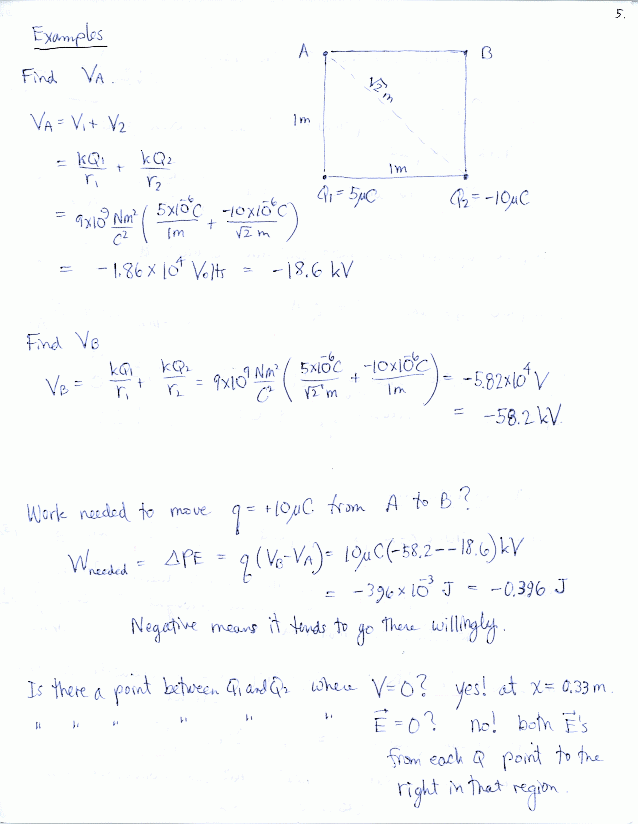 5.
Examples
Find V_A.
V_A = V_1 + V_2
= kQ_1/r_1 + kQ_2/r_2
= 9x10^9 Nm²/C² ( 5x10^-6 C / 1m + -10x10^-6 C / √2 m )
= -1.86 x 10^4 Volts = -18.6 kV
A B
√2 m
1m
1m
Q_1 = 5μC Q_2 = -10μC
Find V_B
V_B = kQ_1/r_1 + kQ_2/r_2 = 9x10^9 Nm²/C² ( 5x10^-6 C / √2 m + -10x10^-6 C / 1m ) = -5.82x10^4 V
= -58.2 kV.
Work needed to move q = +10μC from A to B?
W_needed = ΔPE = q(V_B-V_A) = 10μC(-58.2--18.6) kV
= -396 x 10^-3 J = -0.396 J
Negative means it tends to go there willingly.
Is there a point between Q_1 and Q_2 where V=0? yes! at x = 0.33 m.
" " " " " " E⃗=0? no! both E⃗'s
from each Q point to the
right in that region.